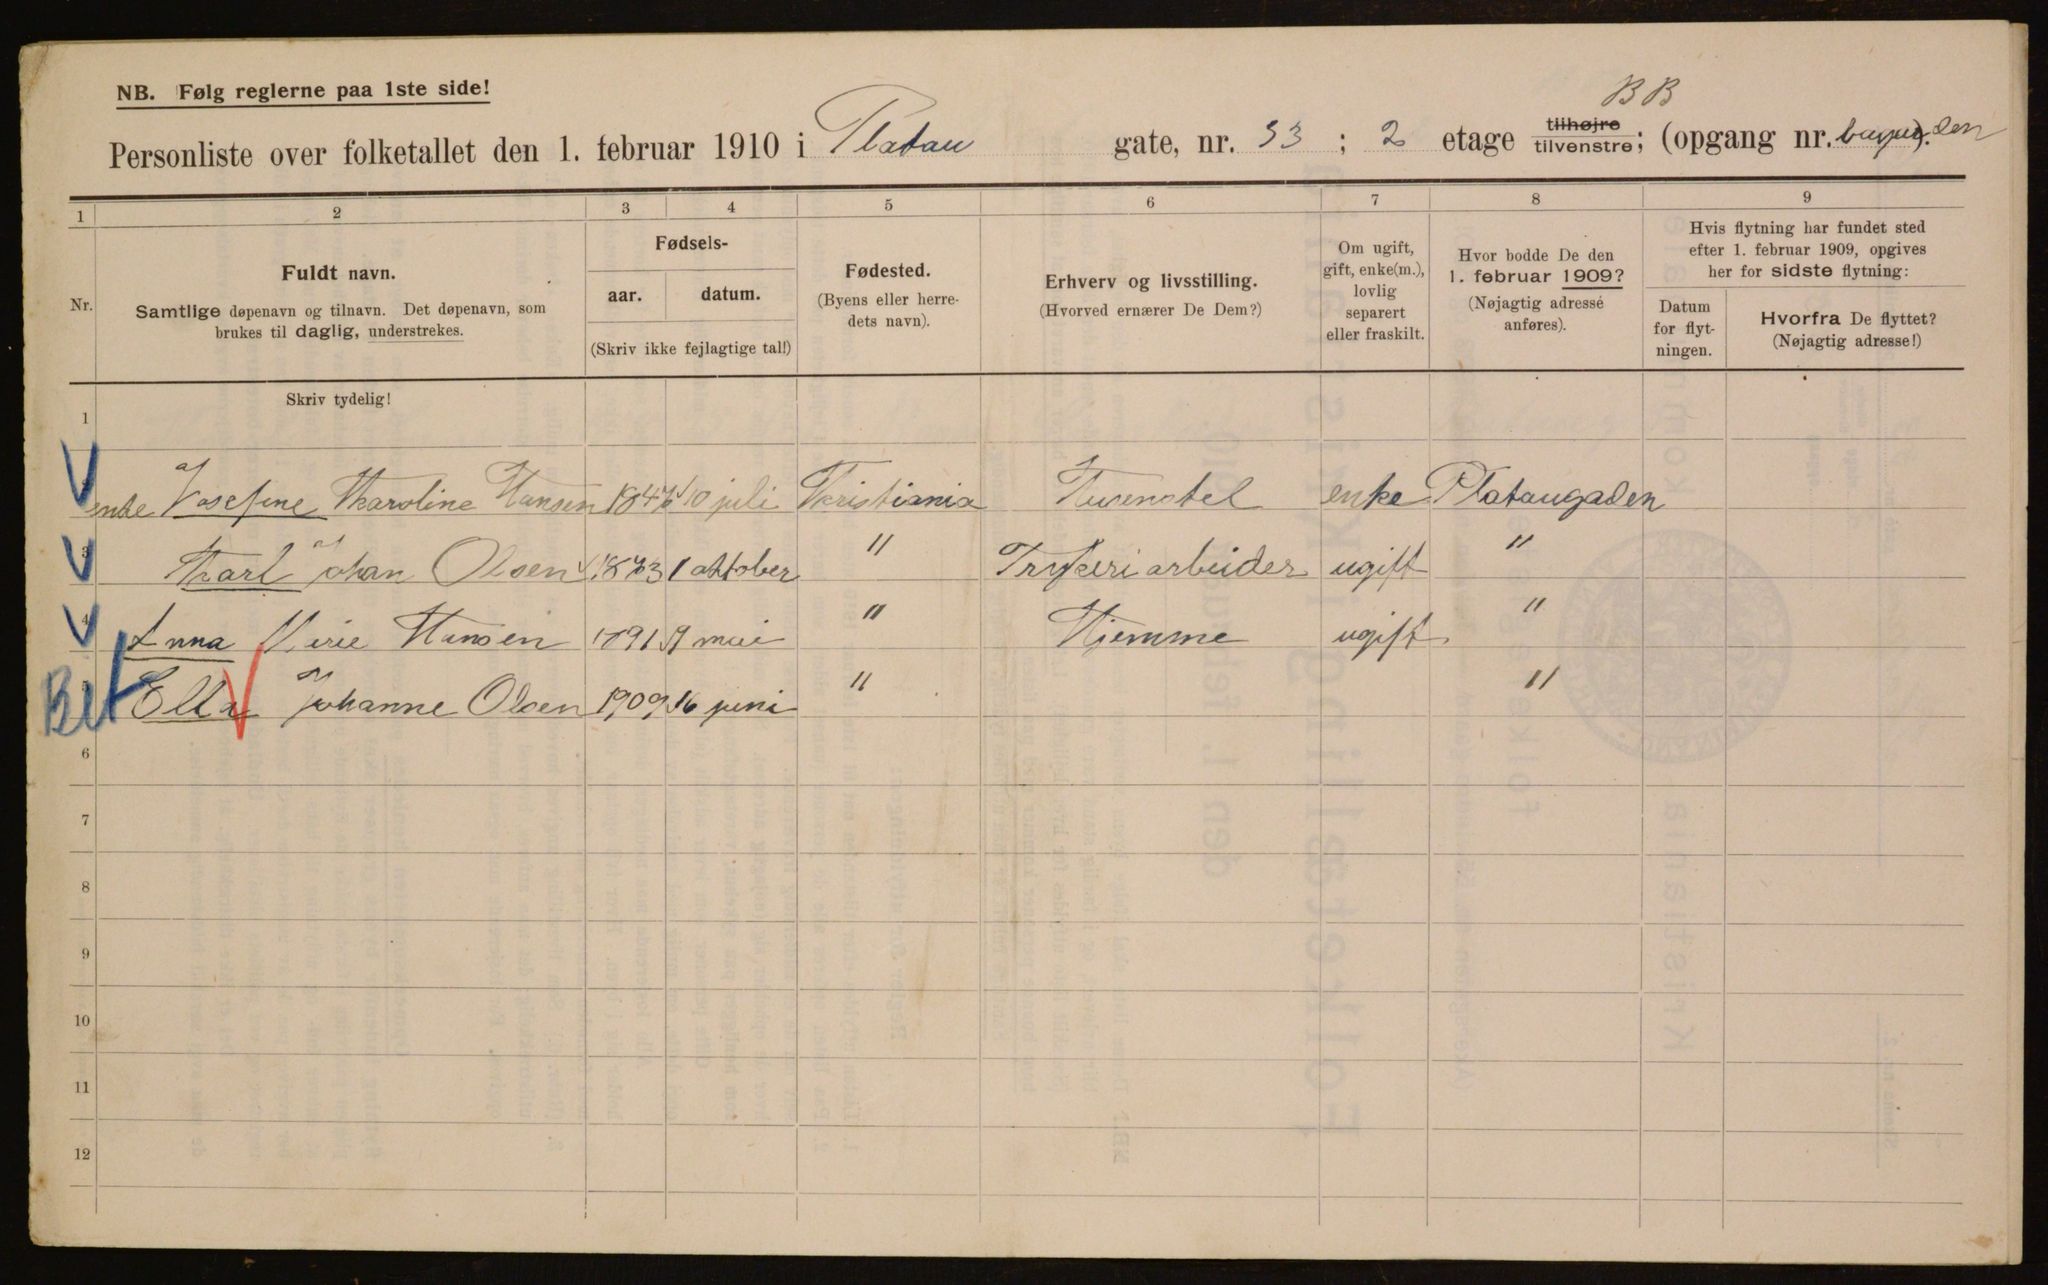 NB. Følg reglerne paa 1ste side!
BB
Personliste over folketallet den 1. februar 1910 i Platau gate, nr. 33 ; 2 etage tilhøjre tilvenstre; (opgang nr. ).
1 2 3 4 5 6 7 8 9
Nr.
Fuldt navn.
Samtlige døpenavn og tilnavn. Det døpenavn, som
brukes til daglig, understrekes.
Fødsels-
aar. datum.
(Skriv ikke fejlagtige tal!)
Fødested.
(Byens eller herre-
dets navn).
Erhverv og livsstilling.
(Hvorved ernærer De Dem?)
Om ugift,
gift, enke(m.),
lovlig
separert
eller fraskilt.
Hvor bodde De den
1. februar 1909?
(Nøjagtig adresse
anføres).
Hvis flytning har fundet sted
efter 1. februar 1909, opgives
her for sidste flytning:
Datum
for flyt-
ningen.
Hvorfra De flyttet?
(Nøjagtig adresse!)
Skriv tydelig!
1
enke Josefine Karoline Hansen 10 juli Kristiania enke Plataugaden
3 Karl Johan Olsen 1873 1 oktober " arbeider ugift "
4 Anna Marie Hansen 1891 9 mai " Hjemme ugift "
Ella Johanne Olsen 1909 16 juni " "
6
7
8
9
10
11
12